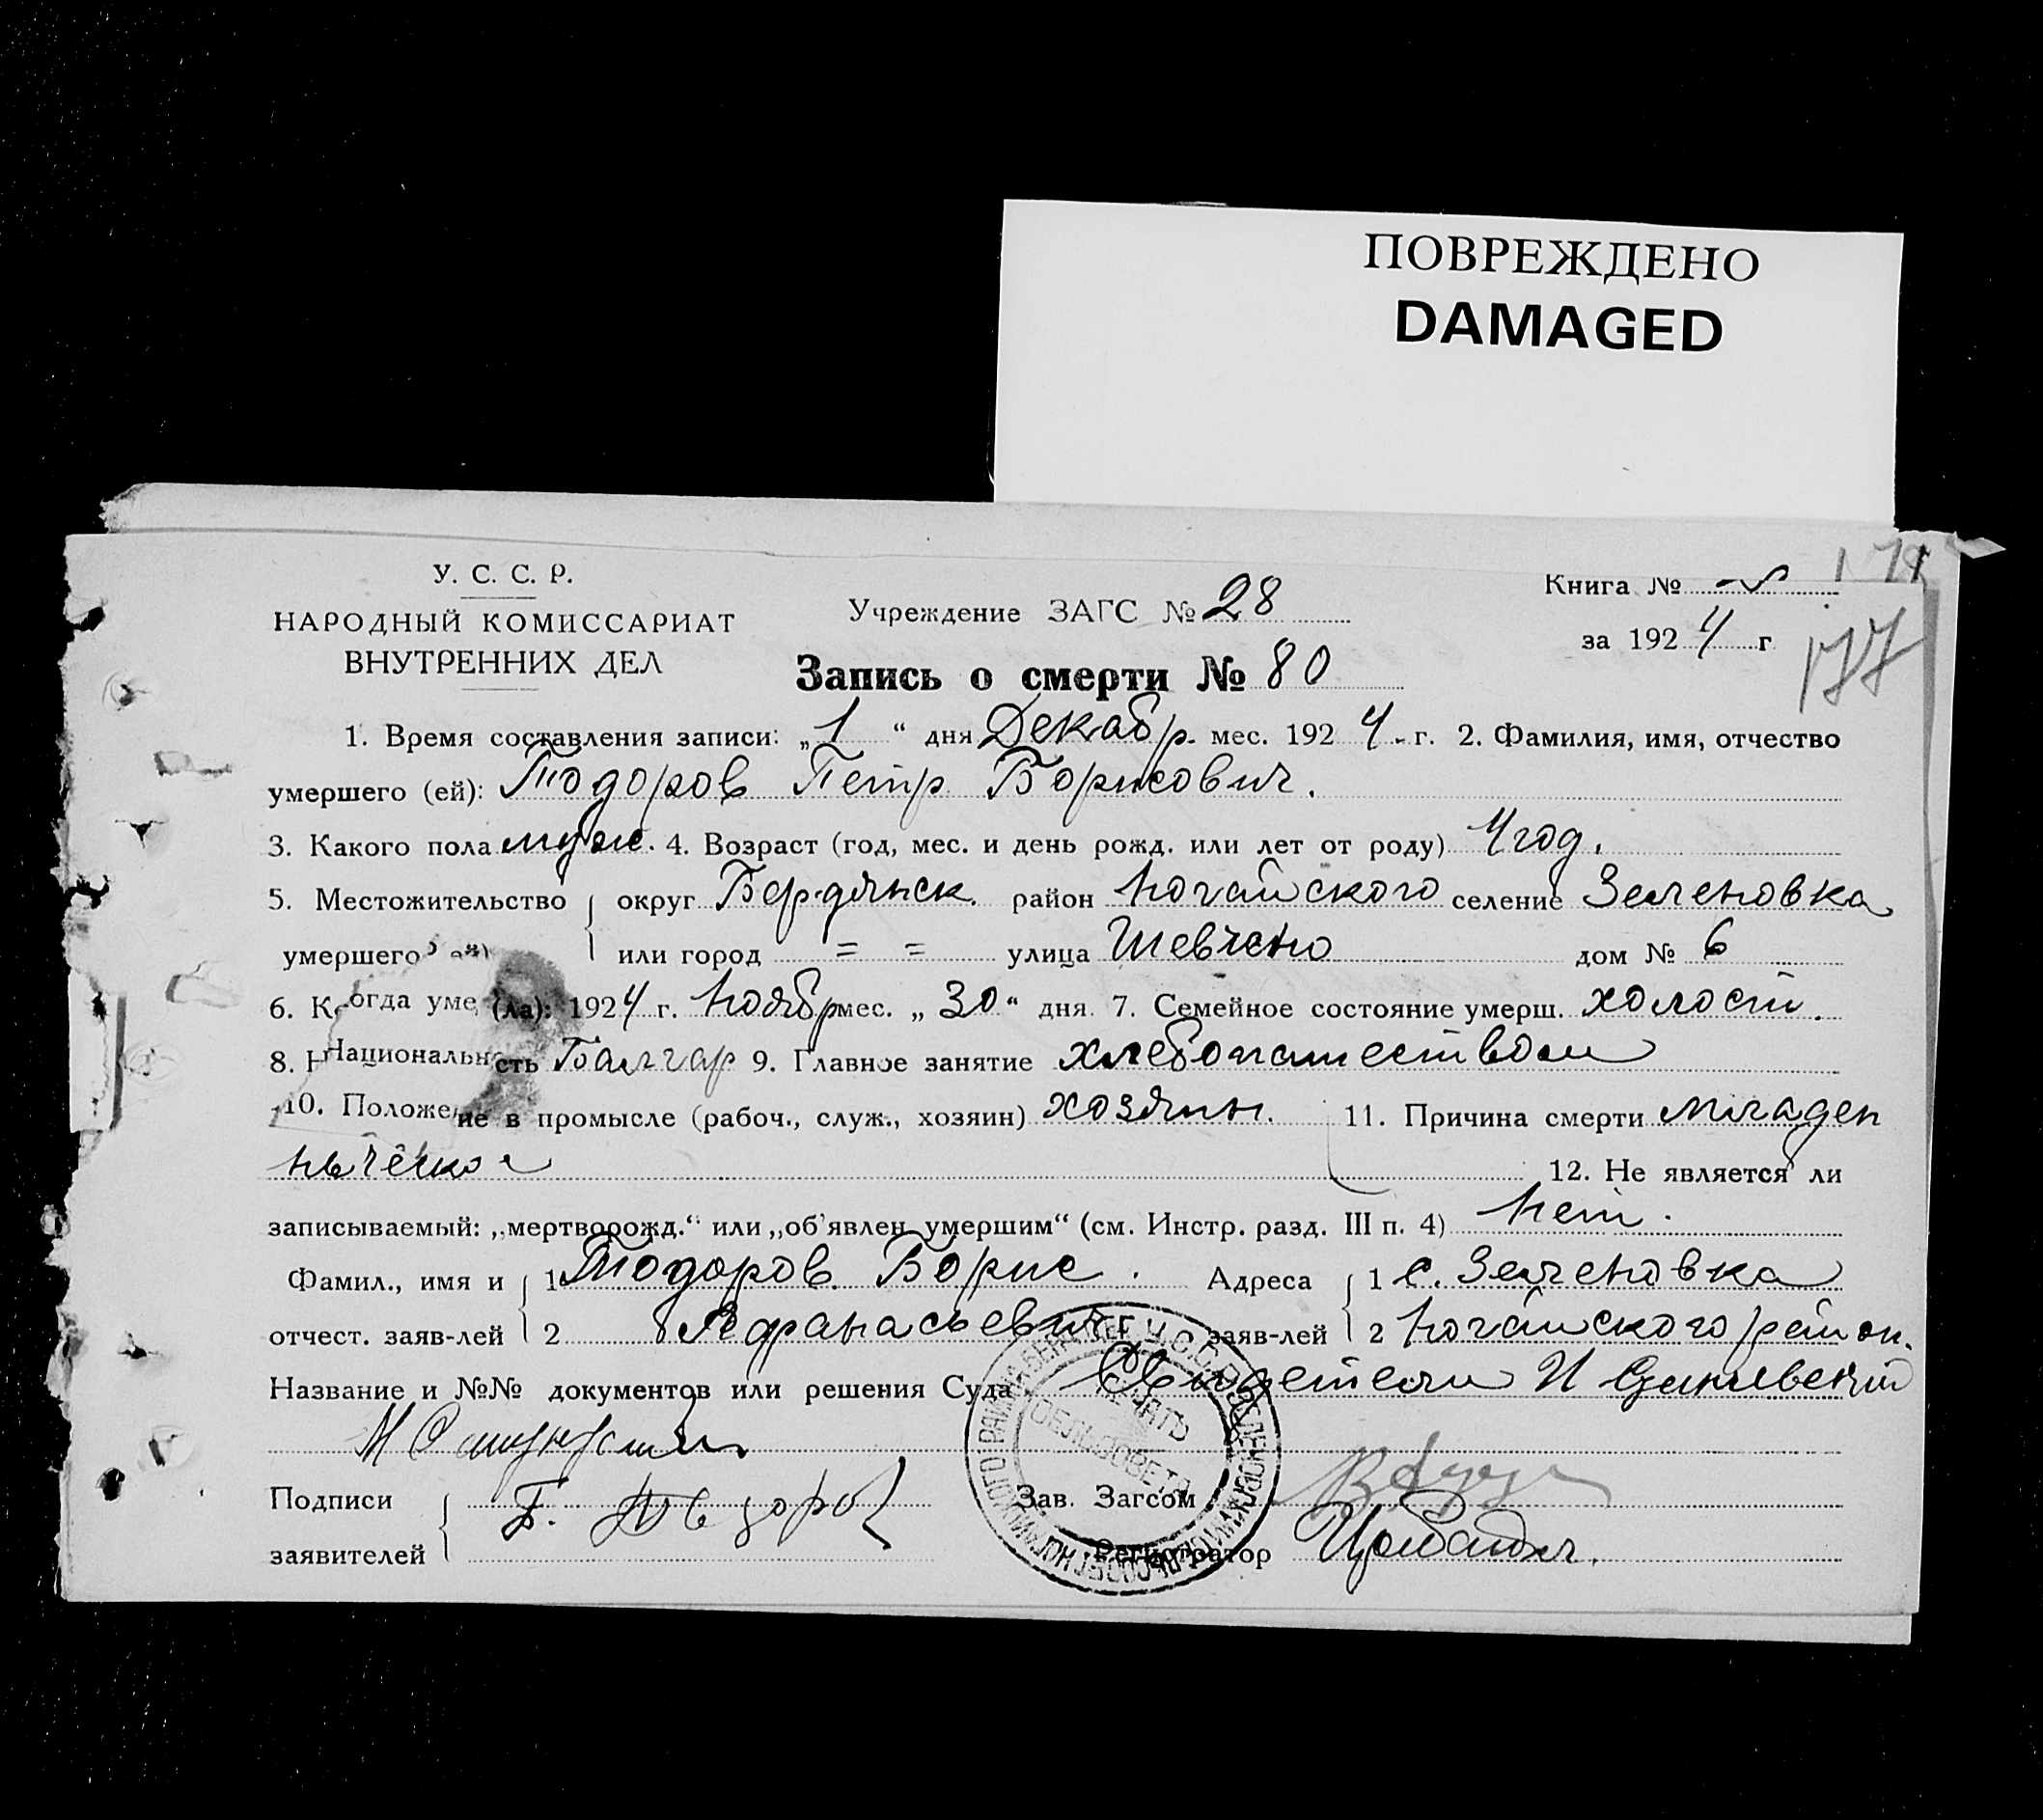 ПОВРЕЖДЕНО
DAMAGED
У. С. С. Р.
НАРОДНЫЙ КОМИССАРИАТ
ВНУТРЕННИХ ДЕЛ
Учреждение ЗАГС № 28
Книга №
за 1924 г
177
Запись о смерти № 80
1. Время составления записи: „1“ дня Декабр. мес. 1924 г. 2. Фамилия, имя, отчество
умершего (ей): Тодоров Петр Борисович.
3. Какого пола муж. 4. Возраст (год, мес. и день рожд. или лет от роду) 4 год.
5. Местожительство округ Бердянск. район Ногайского селение Зеленовка
умершего или город = = улица Шевченко дом № 6
6. Когда уме (ла): 1924 г. Ноябр мес. „30“ дня. 7. Семейное состояние умерш. холост.
8. Национальность Болгар 9. Главное занятие хлебопашеством
10. Положение в промысле (рабоч., служ., хозяин) хозяин. 11. Причина смерти младен
ческое 12. Не является ли
записываемый: „мертворожд.“ или „об'явлен умершим“ (см. Инстр. разд. III п. 4) Нет.
Фамил., имя и 1 Тодоров Борис. Адреса 1 с. Зеленовка
отчест. заяв-лей 2 Афанасьевич заяв-лей 2 Ногайского район.
Название и №№ документов или решения Суда Свидетели И
М
Подписи Б. Тодоров Зав. Загсом
заявителей Регистратор
ПЕЧАТЬ
СЕЛЬСОВЕТА